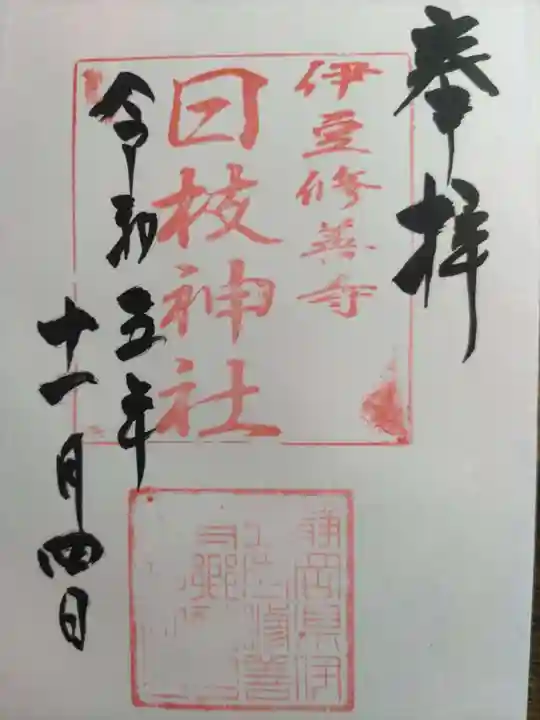 奉拝
伊豆修善寺
日枝神社
令和五年
十一月四日
静岡県伊